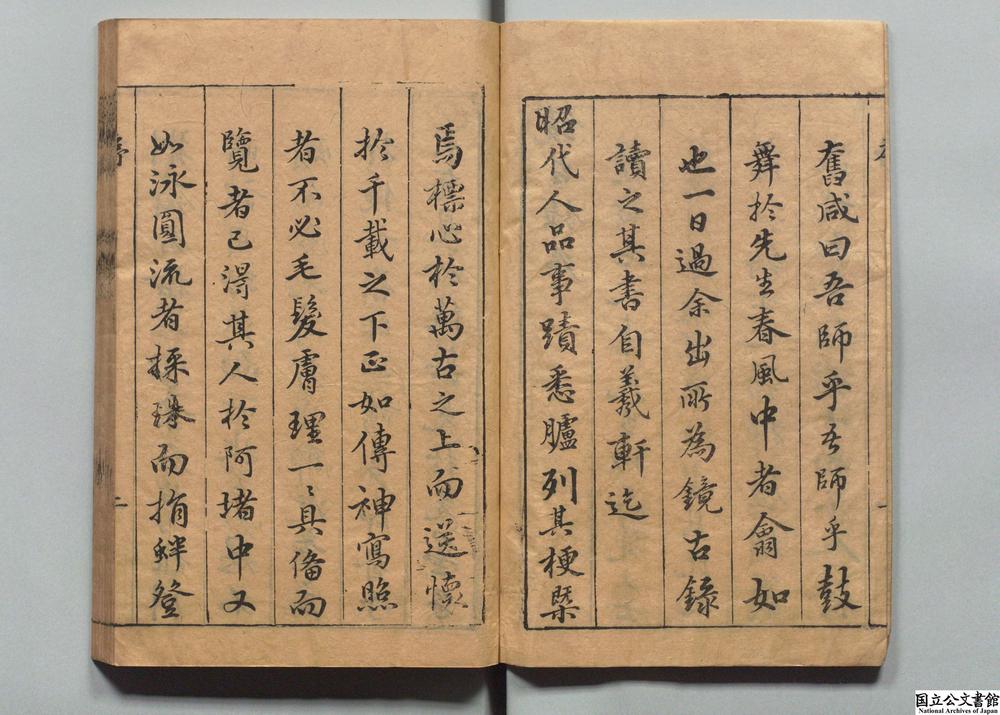 舊咸曰吾師乎吾師乎鼓
舞於先生春風中者翕如
也一日過余出所為鏡古錄
讀之其書自羲軒迄
昭代人品事蹟悉臚列其梗槩
焉標心於萬古之上而送懷
於千載之下正如傳神寫照
者不必毛髮膚理一〻具備而
覽者已得其人於阿堵中又
如泳圓流者採珠而捐蚌登
序
二
国立公文書館
National Archives of Japan